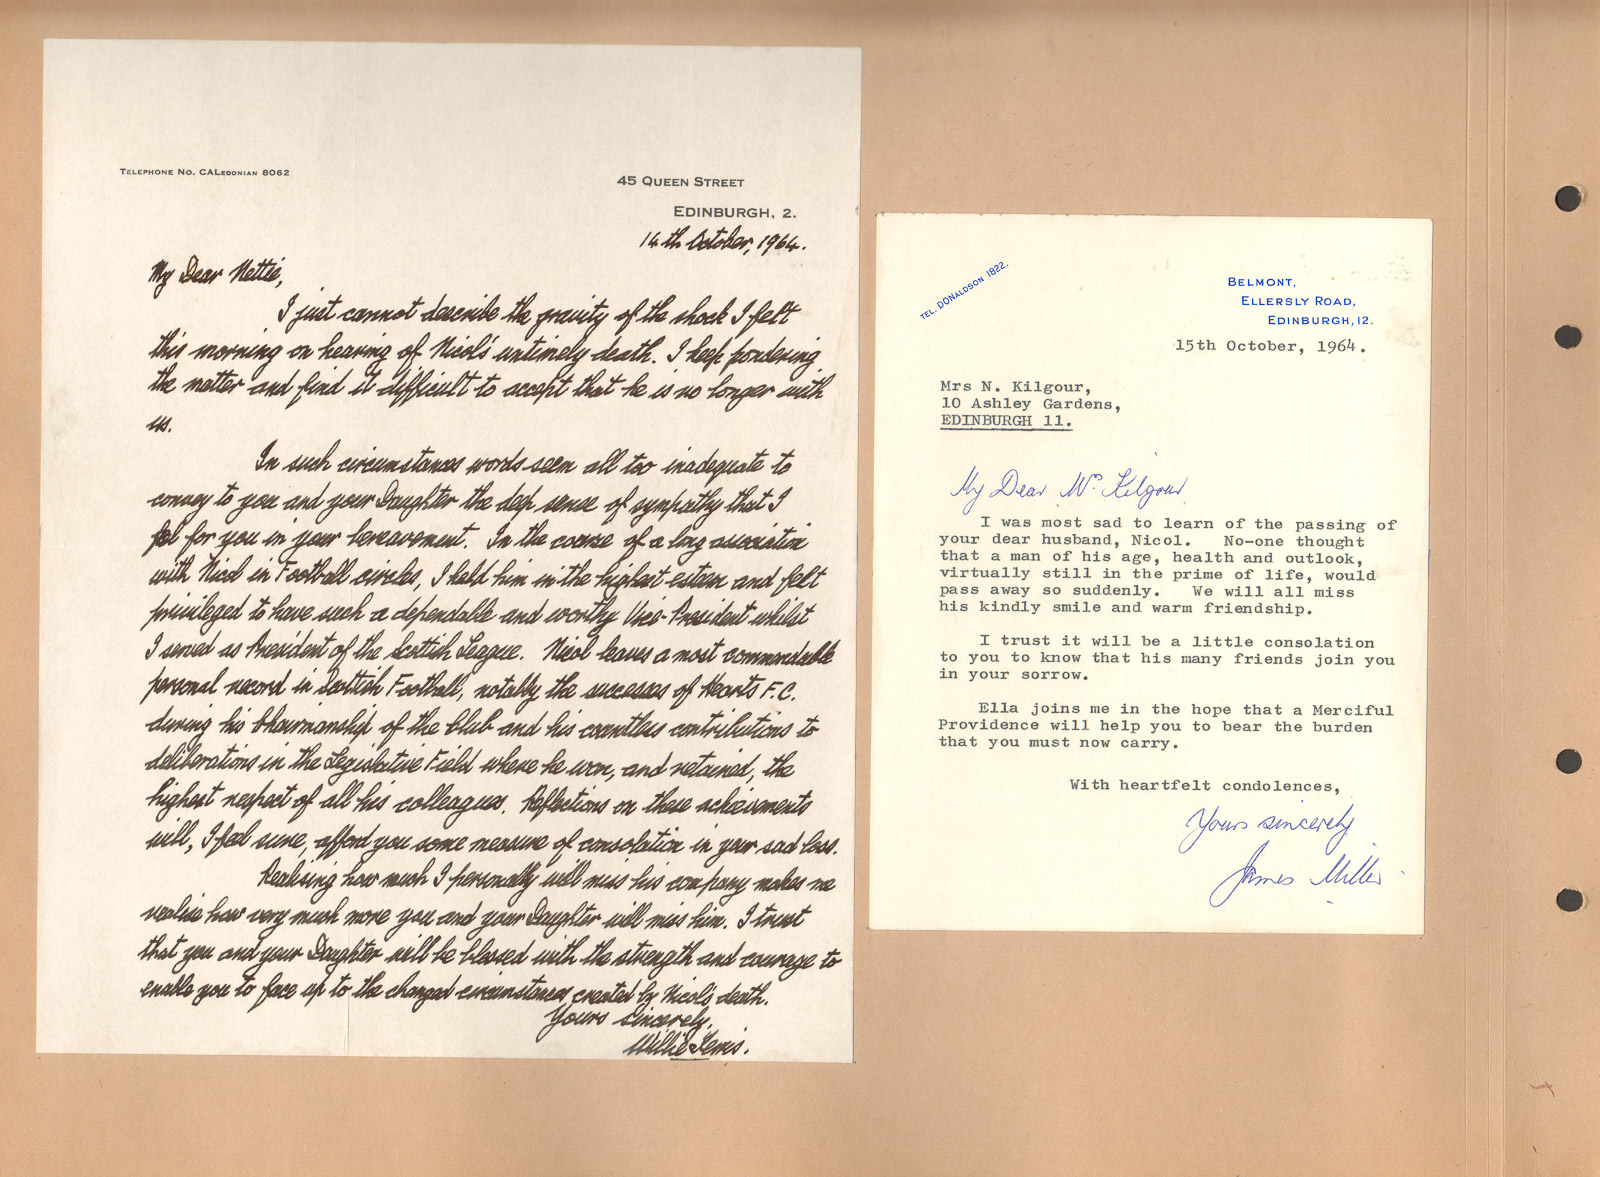 TELEPHONE NO. CALEDONIAN 8062
45 QUEEN STREET
EDINBURGH, 2.
14th October, 1964.
My Dear Nettie,
I just cannot describe the gravity of the shock I felt
this morning on hearing of Nicol's untimely death. I keep pondering
the matter and find it difficult to accept that he is no longer with
us.
In such circumstances words seem all too inadequate to
convey to you and your Daughter the deep sense of sympathy that I
feel for you in your bereavement. In the course of a long association
with Nicol in Football circles, I held him in the highest esteem and felt
privileged to have such a dependable and worthy Vice-President whilst
I served as President of the Scottish League. Nicol leaves a most commendable
personal record in Scottish Football, notably the successes of Hearts F.C.
during his Chairmanship of the Club and his countless contributions to
deliberations in the Legislative Field where he won, and retained, the
highest respect of all his colleagues. Reflections on these achievements
will, I feel sure, afford you some measure of consolation in your sad loss.
Realising how much I personally will miss his company makes me
realise how very much more you and your Daughter will miss him. I trust
that you and your Daughter will be blessed with the strength and courage to
enable you to face up to the changed circumstances created by Nicol's death.
Yours sincerely,
Willie
TEL. DONALDSON 1822.
BELMONT,
ELLERSLY ROAD,
EDINBURGH, 12.
15th October, 1964.
Mrs N. Kilgour,
10 Ashley Gardens,
EDINBURGH 11.
My Dear Mrs Kilgour
I was most sad to learn of the passing of
your dear husband, Nicol. No-one thought
that a man of his age, health and outlook,
virtually still in the prime of life, would
pass away so suddenly. We will all miss
his kindly smile and warm friendship.
I trust it will be a little consolation
to you to know that his many friends join you
in your sorrow.
Ella joins me in the hope that a Merciful
Providence will help you to bear the burden
that you must now carry.
With heartfelt condolences,
Yours sincerely
James Miller